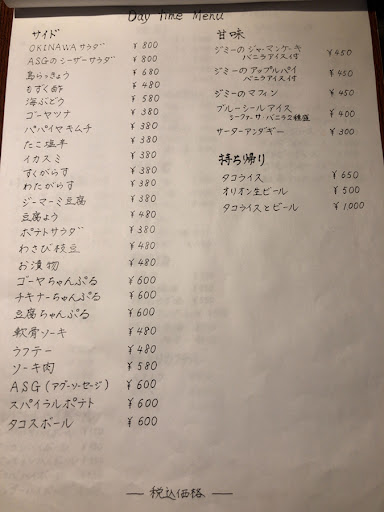 Day Time Menu
サイド
OKINAWAサラダ ¥800
ASGのシーザーサラダ ¥800
島らっきょう ¥680
もずく酢 ¥480
海ぶどう ¥580
ゴーヤツナ ¥380
パパイヤキムチ ¥380
たこ塩辛 ¥380
イカスミ ¥380
すくがらす ¥380
わたがらす ¥380
ジーマーミ豆腐 ¥380
豆腐よう ¥480
ポテトサラダ ¥380
わさび枝豆 ¥480
お漬物 ¥480
ゴーヤちゃんぷる ¥600
チキナーちゃんぷる ¥600
豆腐ちゃんぷる ¥600
軟骨ソーキ ¥480
ラフテー ¥480
ソーキ肉 ¥580
ASG(アグーソーセージ) ¥600
スパイラルポテト ¥600
タコスボール ¥600
甘味
ジミーのジャーマンケーキ ¥450
バニラアイス付
ジミーのアップルパイ ¥450
バニラアイス付
ジミーのマフィン ¥450
ブルーシールアイス ¥400
シークァーサ・バニラ2種盛
サーターアンダギー ¥300
持ち帰り
タコライス ¥650
オリオン生ビール ¥500
タコライスとビール ¥1,000
— 税込価格 —